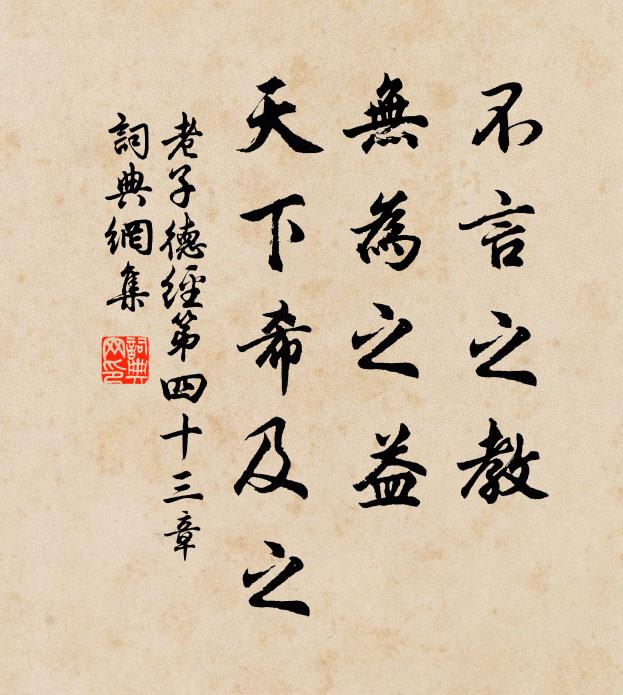 不言之教
無為之益
天下希及之
老子德經第四十三章
詞典網集
詞典网印